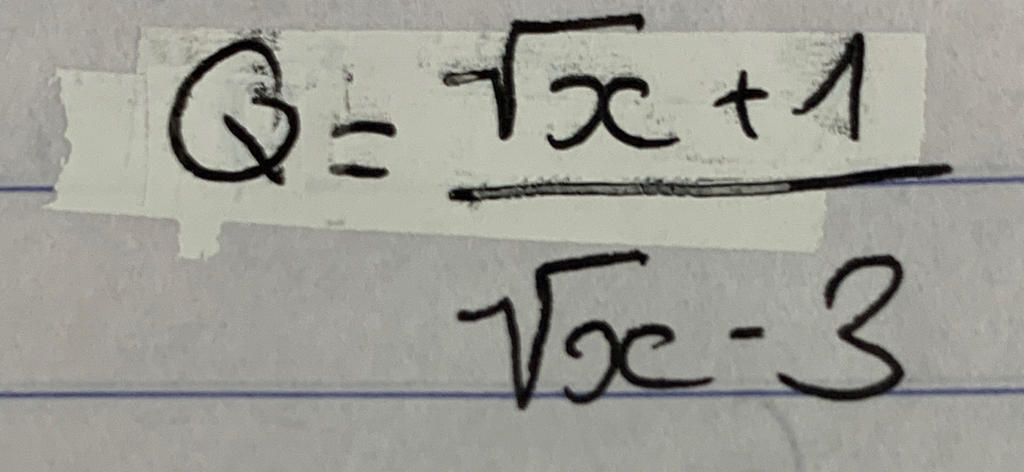 Q = √x + 1
√x - 3